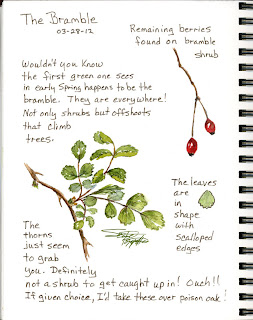 The Bramble
03-28-12
Remaining berries
found on bramble
shrub
Wouldn't you know
the first green one sees
in early Spring happens to be the
bramble. They are everywhere!
Not only shrubs but offshoots
that climb
trees.
The leaves
are
in
shape
with
scalloped
edges
The
thorns
just seem
to grab
you. Definitely
not a shrub to get caught up in! Ouch!!
If given choice, I'd take these over poison oak!